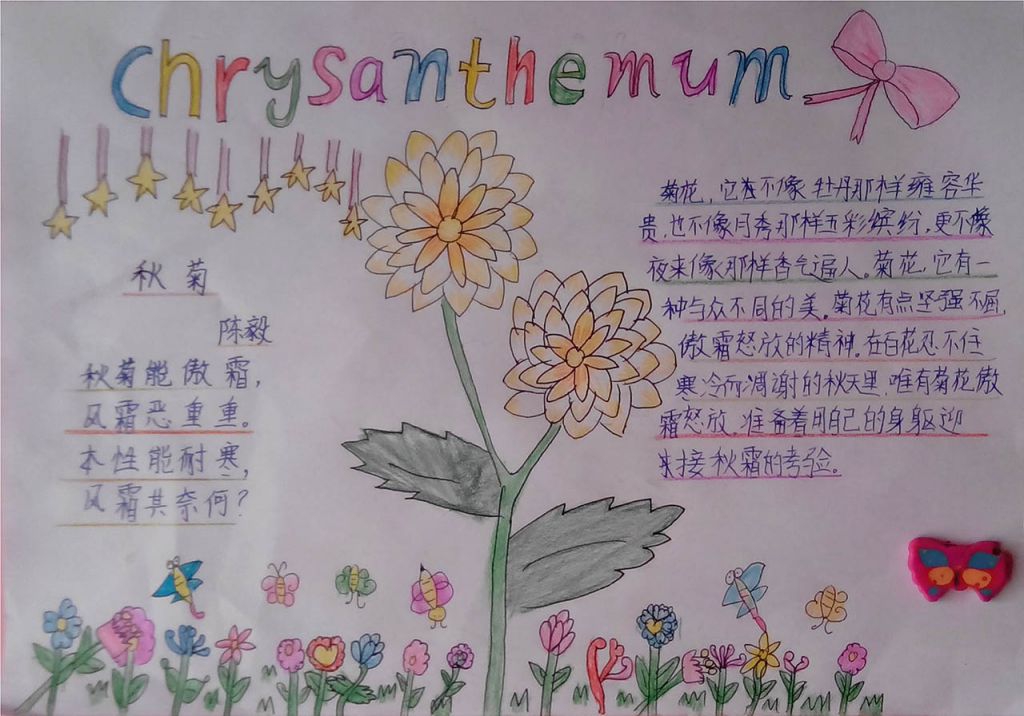 Chrysanthemum
秋菊
陈毅
秋菊能傲霜，
风霜恶重重。
本性能耐寒，
风霜其奈何？
菊花，它在不像牡丹那样雍容华
贵，也不像月秀那样五彩缤纷，更不像
夜来像那样香气逼人。菊花，它有一
种与众不同的美。菊花有点坚强不屈，
傲霜怒放的精神。在百花忍不住
寒冷而凋谢的秋天里，唯有菊花傲
霜怒放，准备着用自己的身躯迎
来接秋霜的考验。